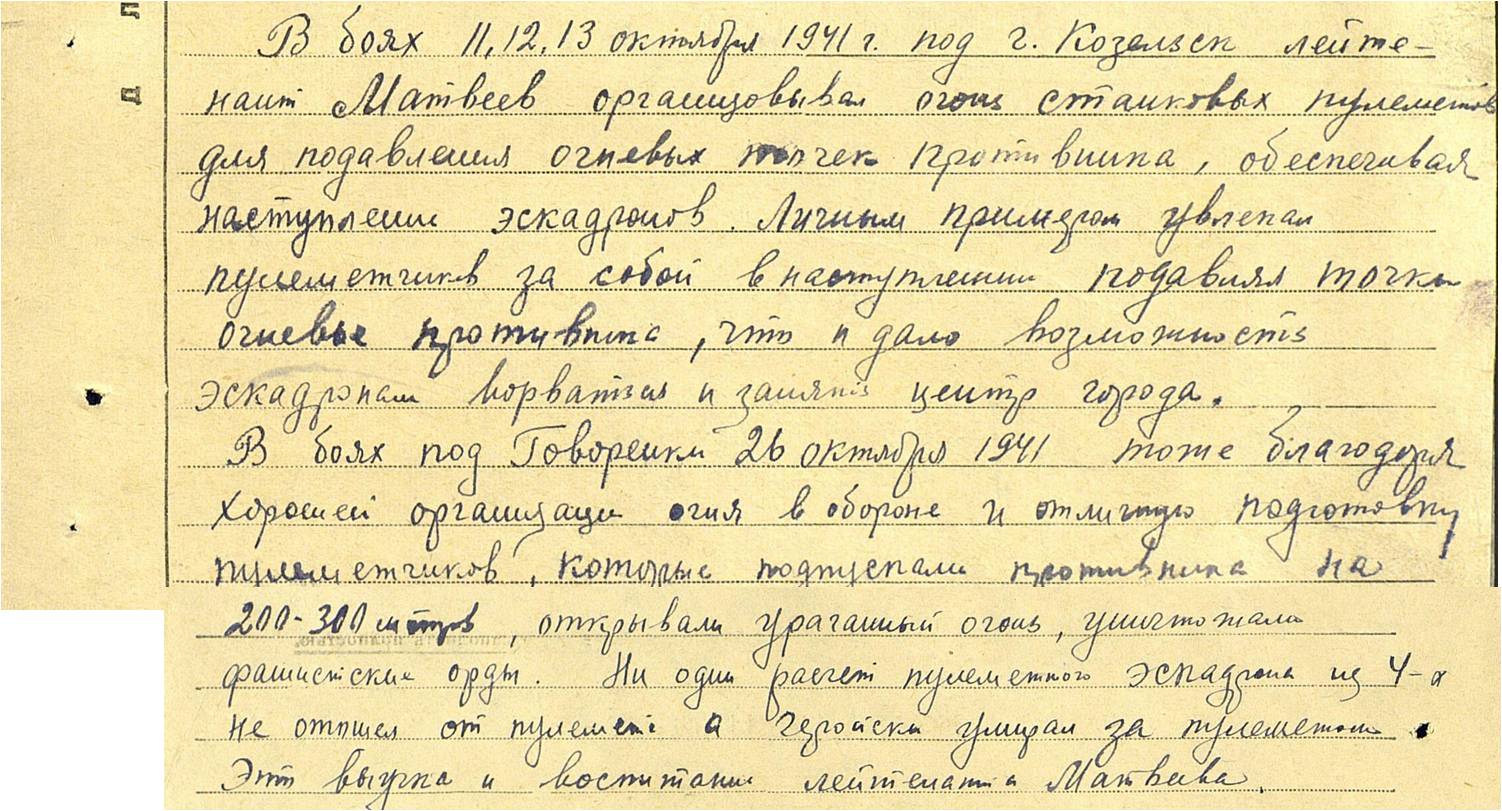 л
д
В боях 11, 12, 13 октября 1941 г. под г. Козельск лейте-
нант Матвеев организовывал огонь станковых пулеметов
для подавления огневых точек противника, обеспечивая
наступление эскадронов. Личным примером увлекал
пулеметчиков за собой в наступлении подавлял точки
огневые противника, что и дало возможность
эскадронам ворваться и занять центр города.
В боях под Говоренки 26 октября 1941 тоже благодоря
хорошей организации огня в обороне и отличную подготовку
пулеметчиков, которые подпускали противника на
200-300 метров, открывали ураганный огонь, уничтожали
фашистские орды. Ни один расчет пулеметного эскадрона из 4-х
не отошел от пулемета а геройски умирал за пулеметом.
Это выучка и воспитание лейтенанта Матвеева.